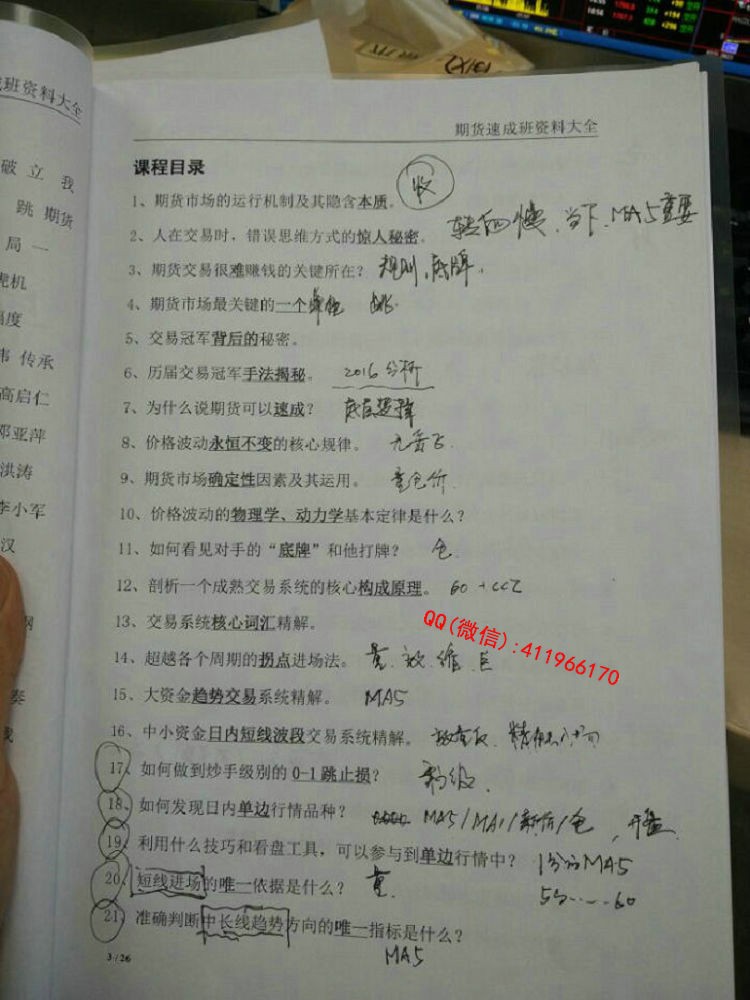 班资料大全
破 立 我
跳 期货
局 一
虎机
幅度
韦 传承
高启仁
邓亚萍
洪涛
李小军
汉
网
奏
我
期货速成班资料大全
课程目录
收
1、期货市场的运行机制及其隐含本质。
2、人在交易时，错误思维方式的惊人秘密。 当下、MA5重要
3、期货交易很难赚钱的关键所在？ 规则、底牌。
4、期货市场最关键的一个单位
5、交易冠军背后的秘密。
6、历届交易冠军手法揭秘。 2016分析
7、为什么说期货可以速成？
8、价格波动永恒不变的核心规律。
9、期货市场确定性因素及其运用。 量仓价.
10、价格波动的物理学、动力学基本定律是什么？
11、如何看见对手的“底牌”和他打牌？ 仓
12、剖析一个成熟交易系统的核心构成原理。 60 + CCI
13、交易系统核心词汇精解。
QQ(微信):411966170
14、超越各个周期的拐点进场法。 量.
15、大资金趋势交易系统精解。 MA5
16、中小资金日内短线波段交易系统精解。
17、如何做到炒手级别的 0-1 跳止损？ 秒级.
18、如何发现日内单边行情品种？ MA5/MA1/新价/仓，开盘
19、利用什么技巧和看盘工具，可以参与到单边行情中？ 1分的MA5
20、短线进场的唯一依据是什么？ 量. 5分……60
21、准确判断中长线趋势方向的唯一指标是什么？
MA5
3 / 26